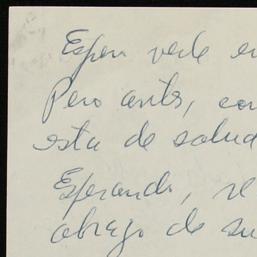 Espero verle en
Pero antes, con
esta de salud
Esperando, se
abrazo de su